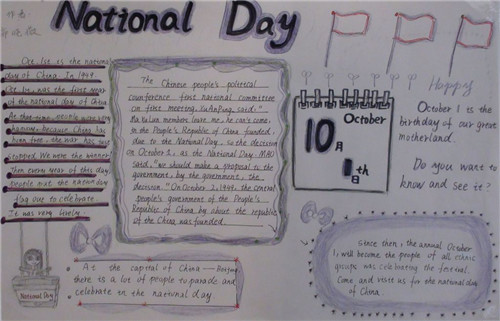 National Day
Oct. 1st is the national
day of China. In 1949.
Oct 1st, was the first year
of the national day of China
At that time, people were very
happy, because China has
born free, the war has
stopped. We were the winner
Then every year of this day
people put the nation day
flag out to celebrate
It was very lively
National Day
The Chinese people's political
counference first national committee
on first meeting, said, "
Ma Xulun members leave me, he can't come,
in the People's Republic of China founded,
due to the National Day, so the decision
on October 1, as the National Day. MAO
said, "we should make a proposal to the
government, by the government, the
decision." On October 2, 1949, the central
people's government of the People's
Republic of China by about the republic
of the China was founded.
As the capital of China — Beijing,
there is a lot of people to parade and
celebrate in the national day
October
10月
1th
日
Happy
October 1 is the
birthday of our great
motherland.
Do you want to
know and see it?
Since then, the annual October
1, will become the people of all ethnic
groups was celebrating the festival.
Come and visit us for the national day
of China.